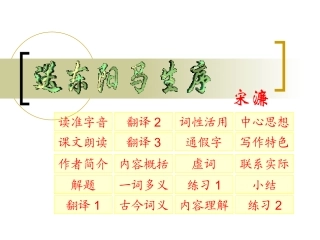 送东阳马生序
宋濂
读准字音 翻译2 词性活用 中心思想
课文朗读 翻译3 通假字 写作特色
作者简介 内容概括 虚词 联系实际
解题 一词多义 练习1 小结
翻译1 古今词义 内容理解 练习2